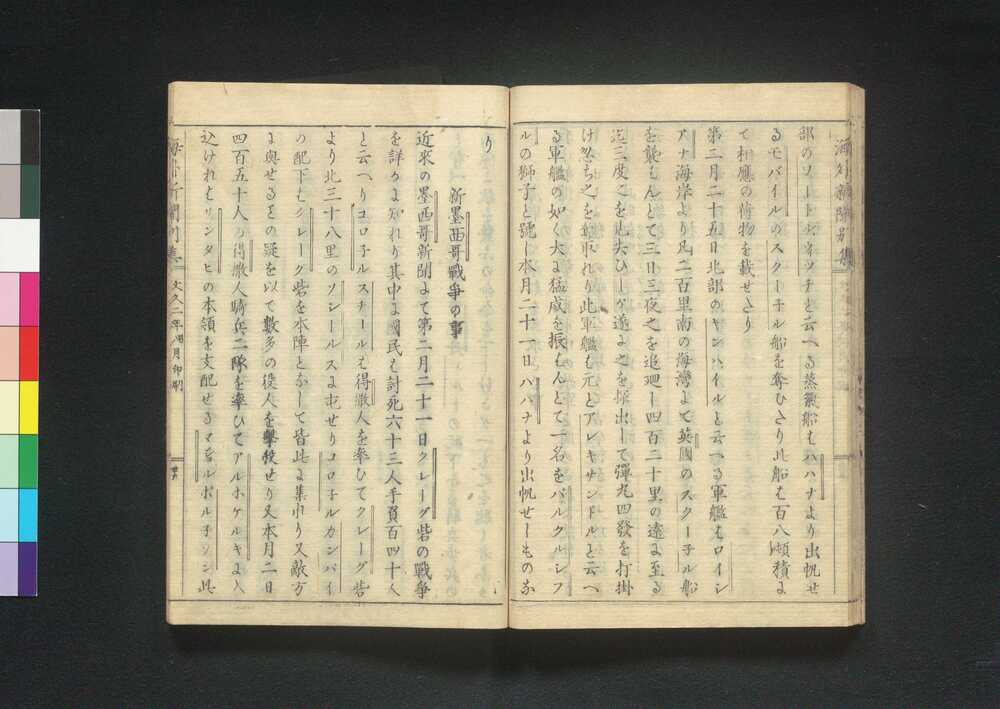 部のソートルウィツチと云へる蒸氣船もハハナより出帆せ
るモバイルのスクー子ル船を奪ひたり此船も百八噸積よ
て相應の荷物を載せたり
第三月二十五日北部のヤンハイルと云へる軍艦もロイシ
アナ海岸より凡二百里南の海灣よて英國のスクー子ル船
を襲もんとて三日三夜之を追廻し四百二十里の遠よ至る
迄三度之を見失ひしが遂よ之を探出して彈丸四發を打掛
け忽ち之を奪取れり此軍艦も元とアレキサンドルと云へ
る軍艦の如く大よ猛威を振もんとて一名をバルクルシフ
ルの獅子と號し本月二十一日ハハナより出帆せしものな
り
新墨西哥戰爭の事
近來の墨西哥新聞よて第二月二十一日クレーグ砦の戰爭
を詳かよ知れり其中よ國民も討死六十三人手負百四十人
と云へりコロ子ルスチールも得撒人を率ひてクレーグ砦
より北三十八里のソシールスよ屯せりコロ子ルカンバイ
の配下もクレーグ砦を本陣となして皆此よ集れり又敵方
よ與せるとの疑を以て數多の役人を擊殺せり又本月二日
四百五十人の得撒人騎兵二隊を率ひてアルホケルキよ入
込けれもサンタヒの本領を支配せるマヨルドルチソン此
海外新聞別集
文久二年 月印刷